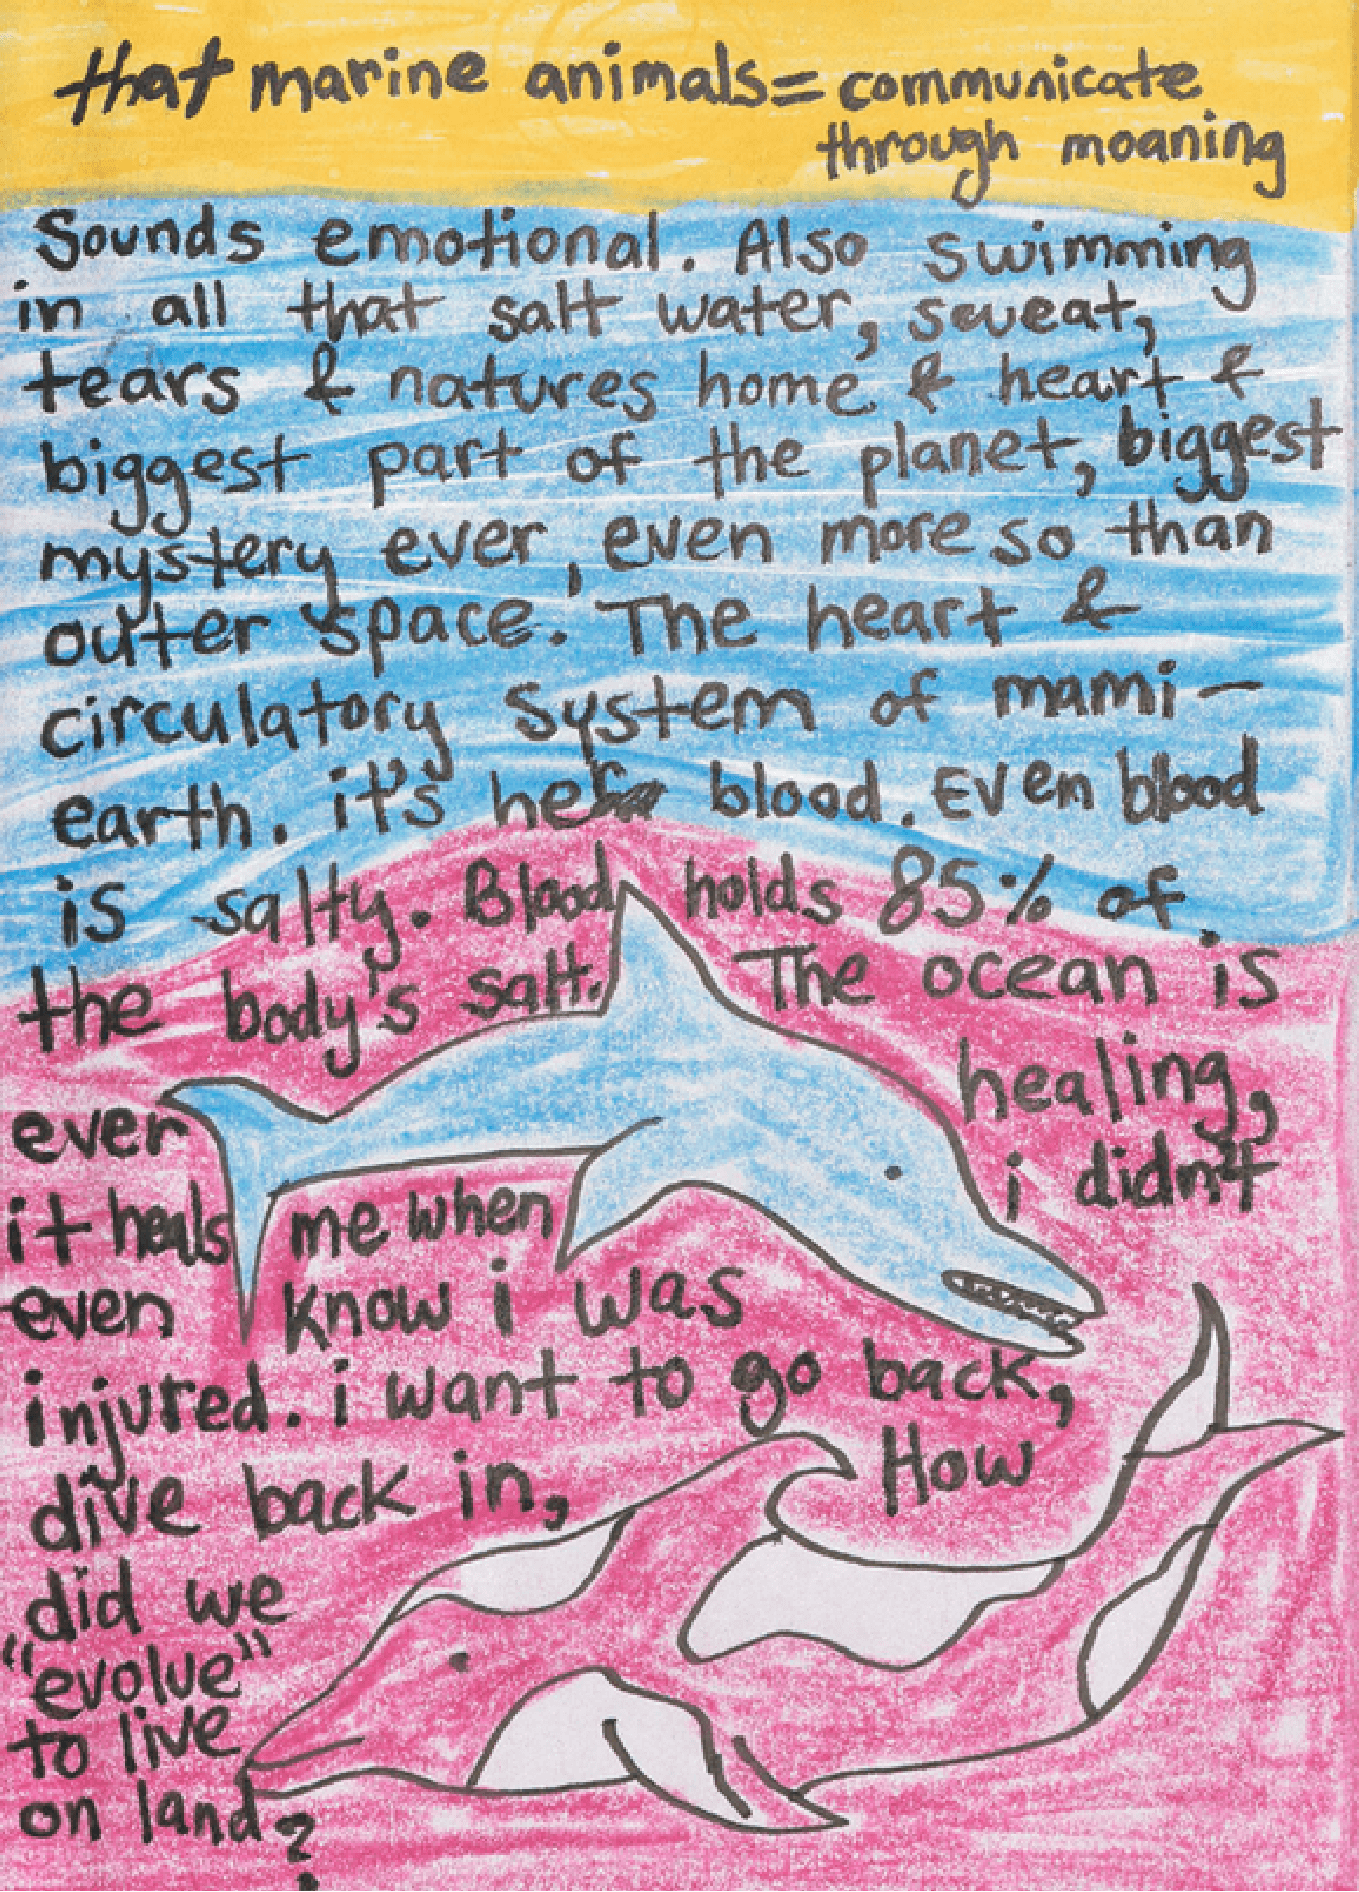 that marine animals = communicate
through moaning
Sounds emotional. Also swimming
in all that salt water, sweat,
tears & natures home & heart &
biggest part of the planet, biggest
mystery ever, even more so than
outer space. The heart &
circulatory system of mami-
earth. it's her blood. Even blood
is salty. Blood holds 85% of
the body's salt. The ocean is
healing,
ever i didn't
it heals me when
even know i was
injured. i want to go back,
dive back in, How
did we
"evolve"
to live
on land?